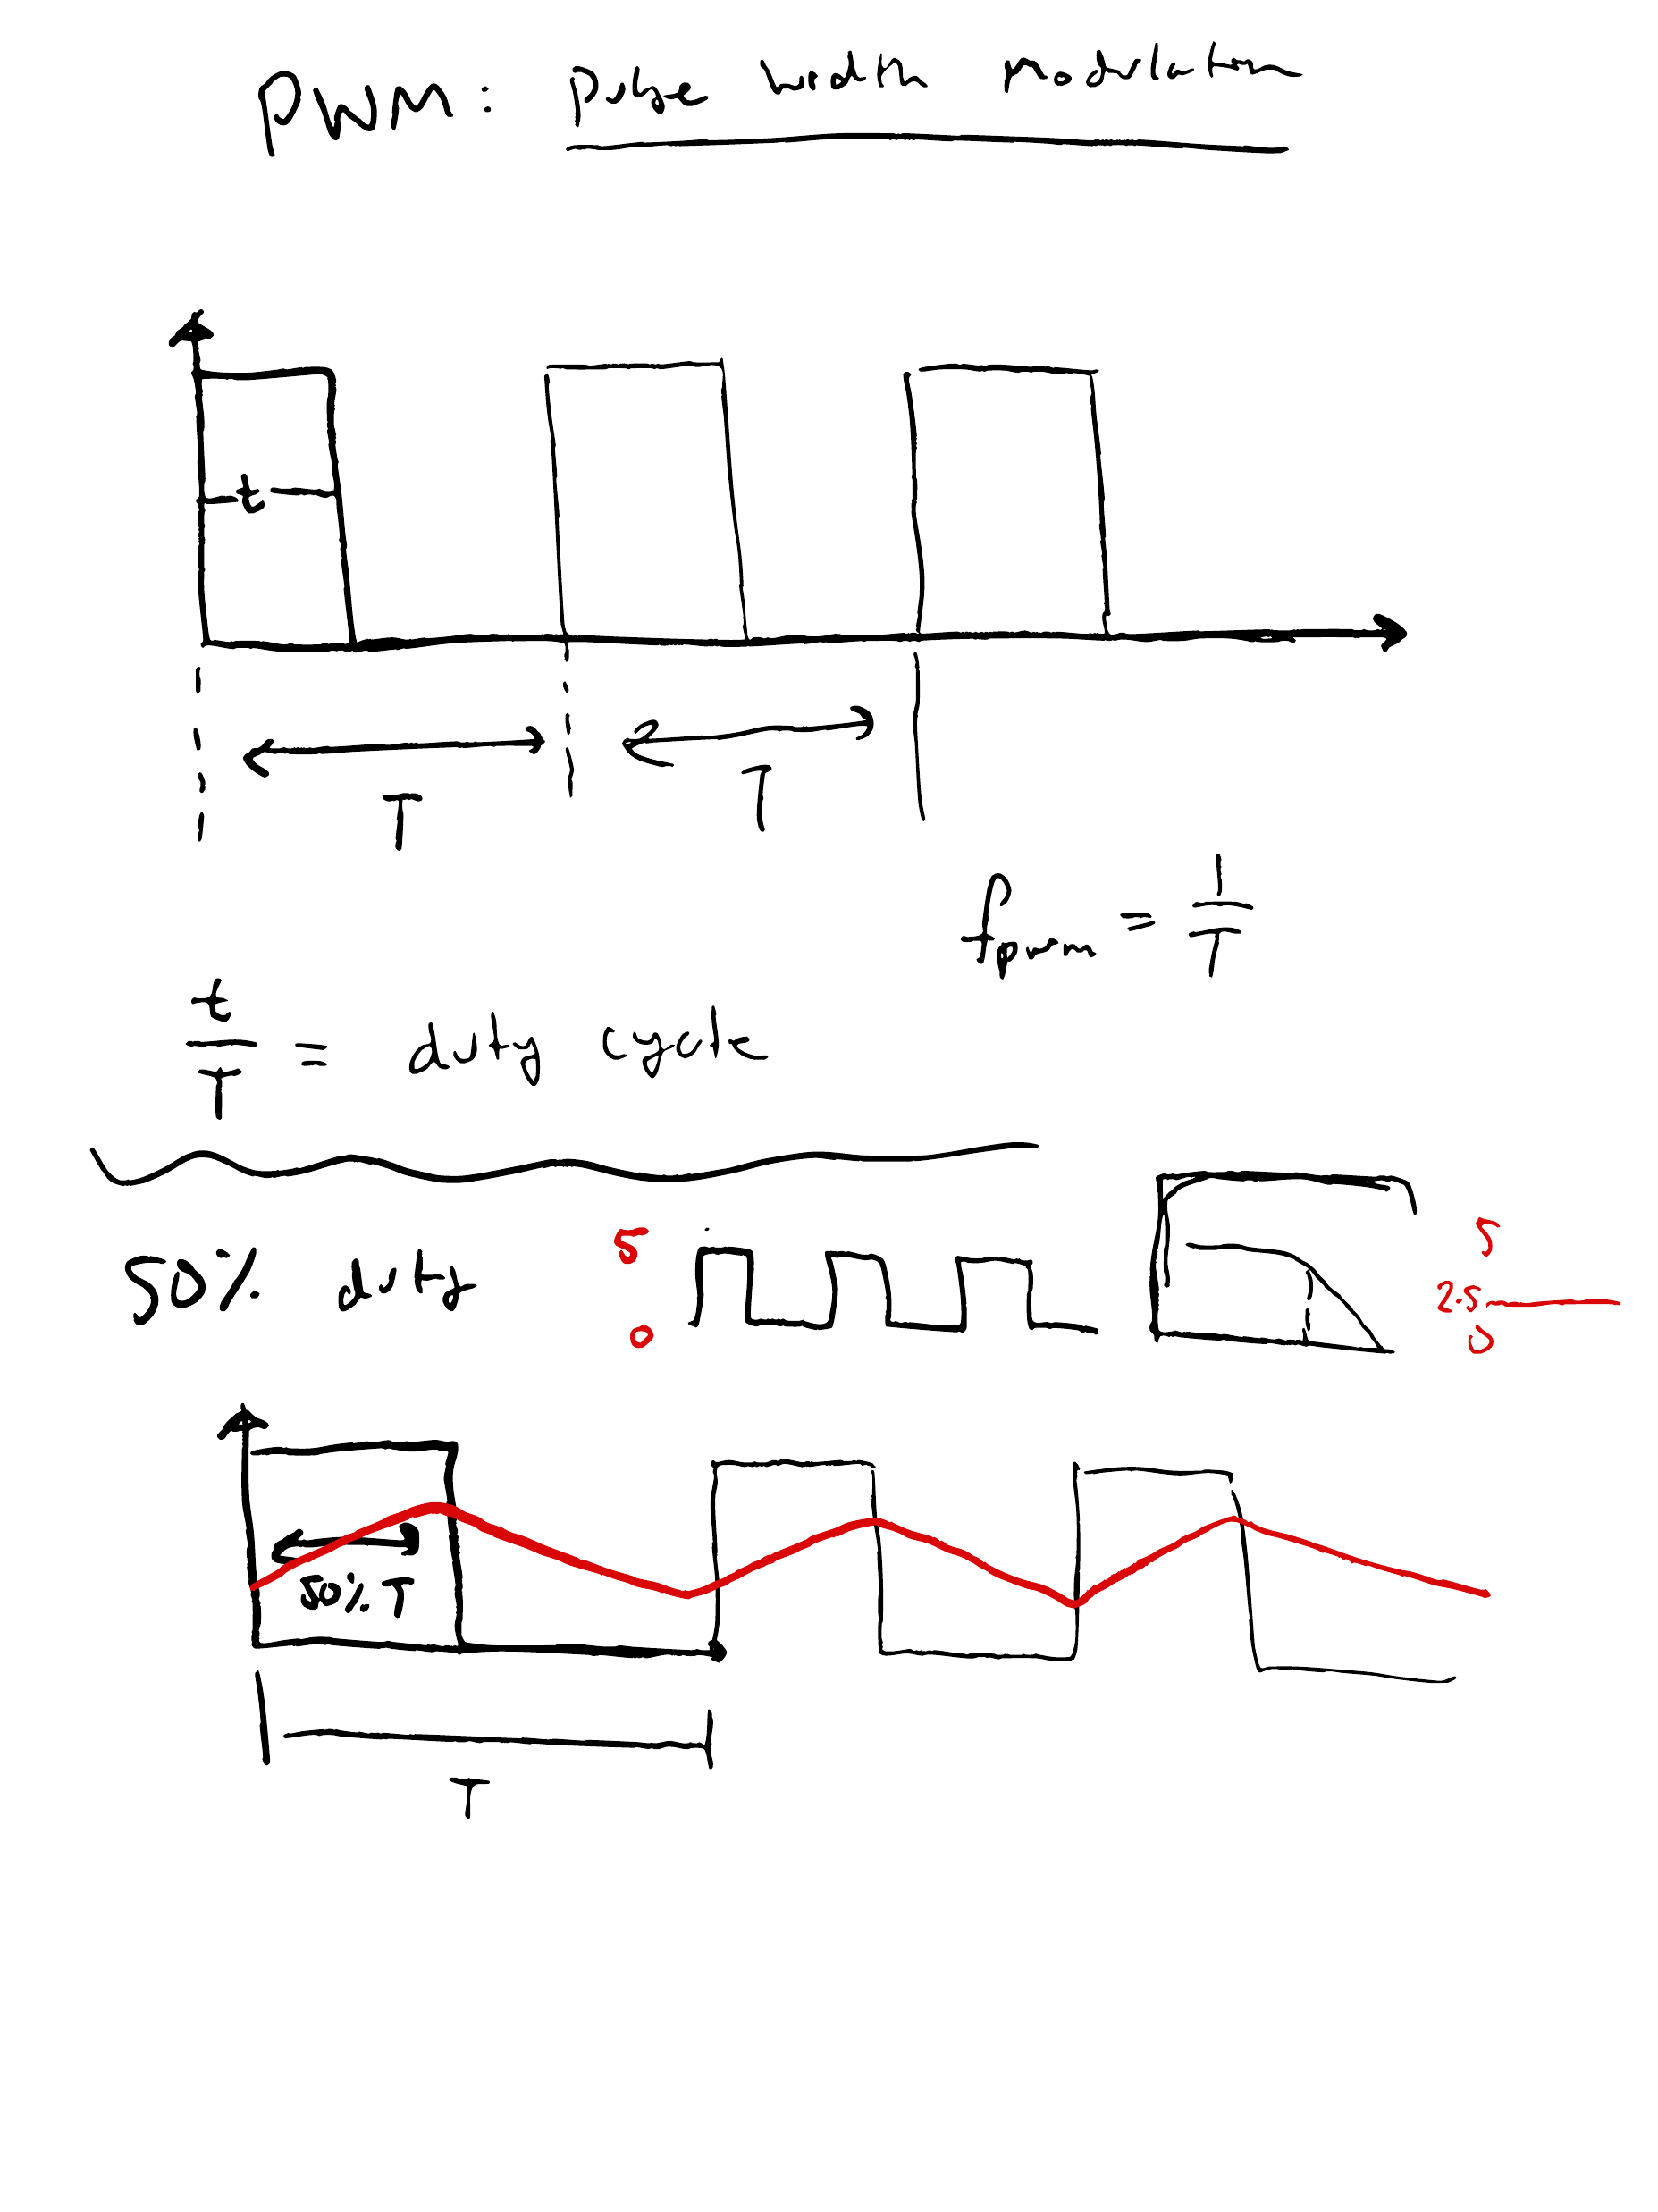 PWM: Pulse width modulation
t
T T
f_pwm = 1/T
t/T = duty cycle
50% duty
5
0
5
2.5
0
50% T
T